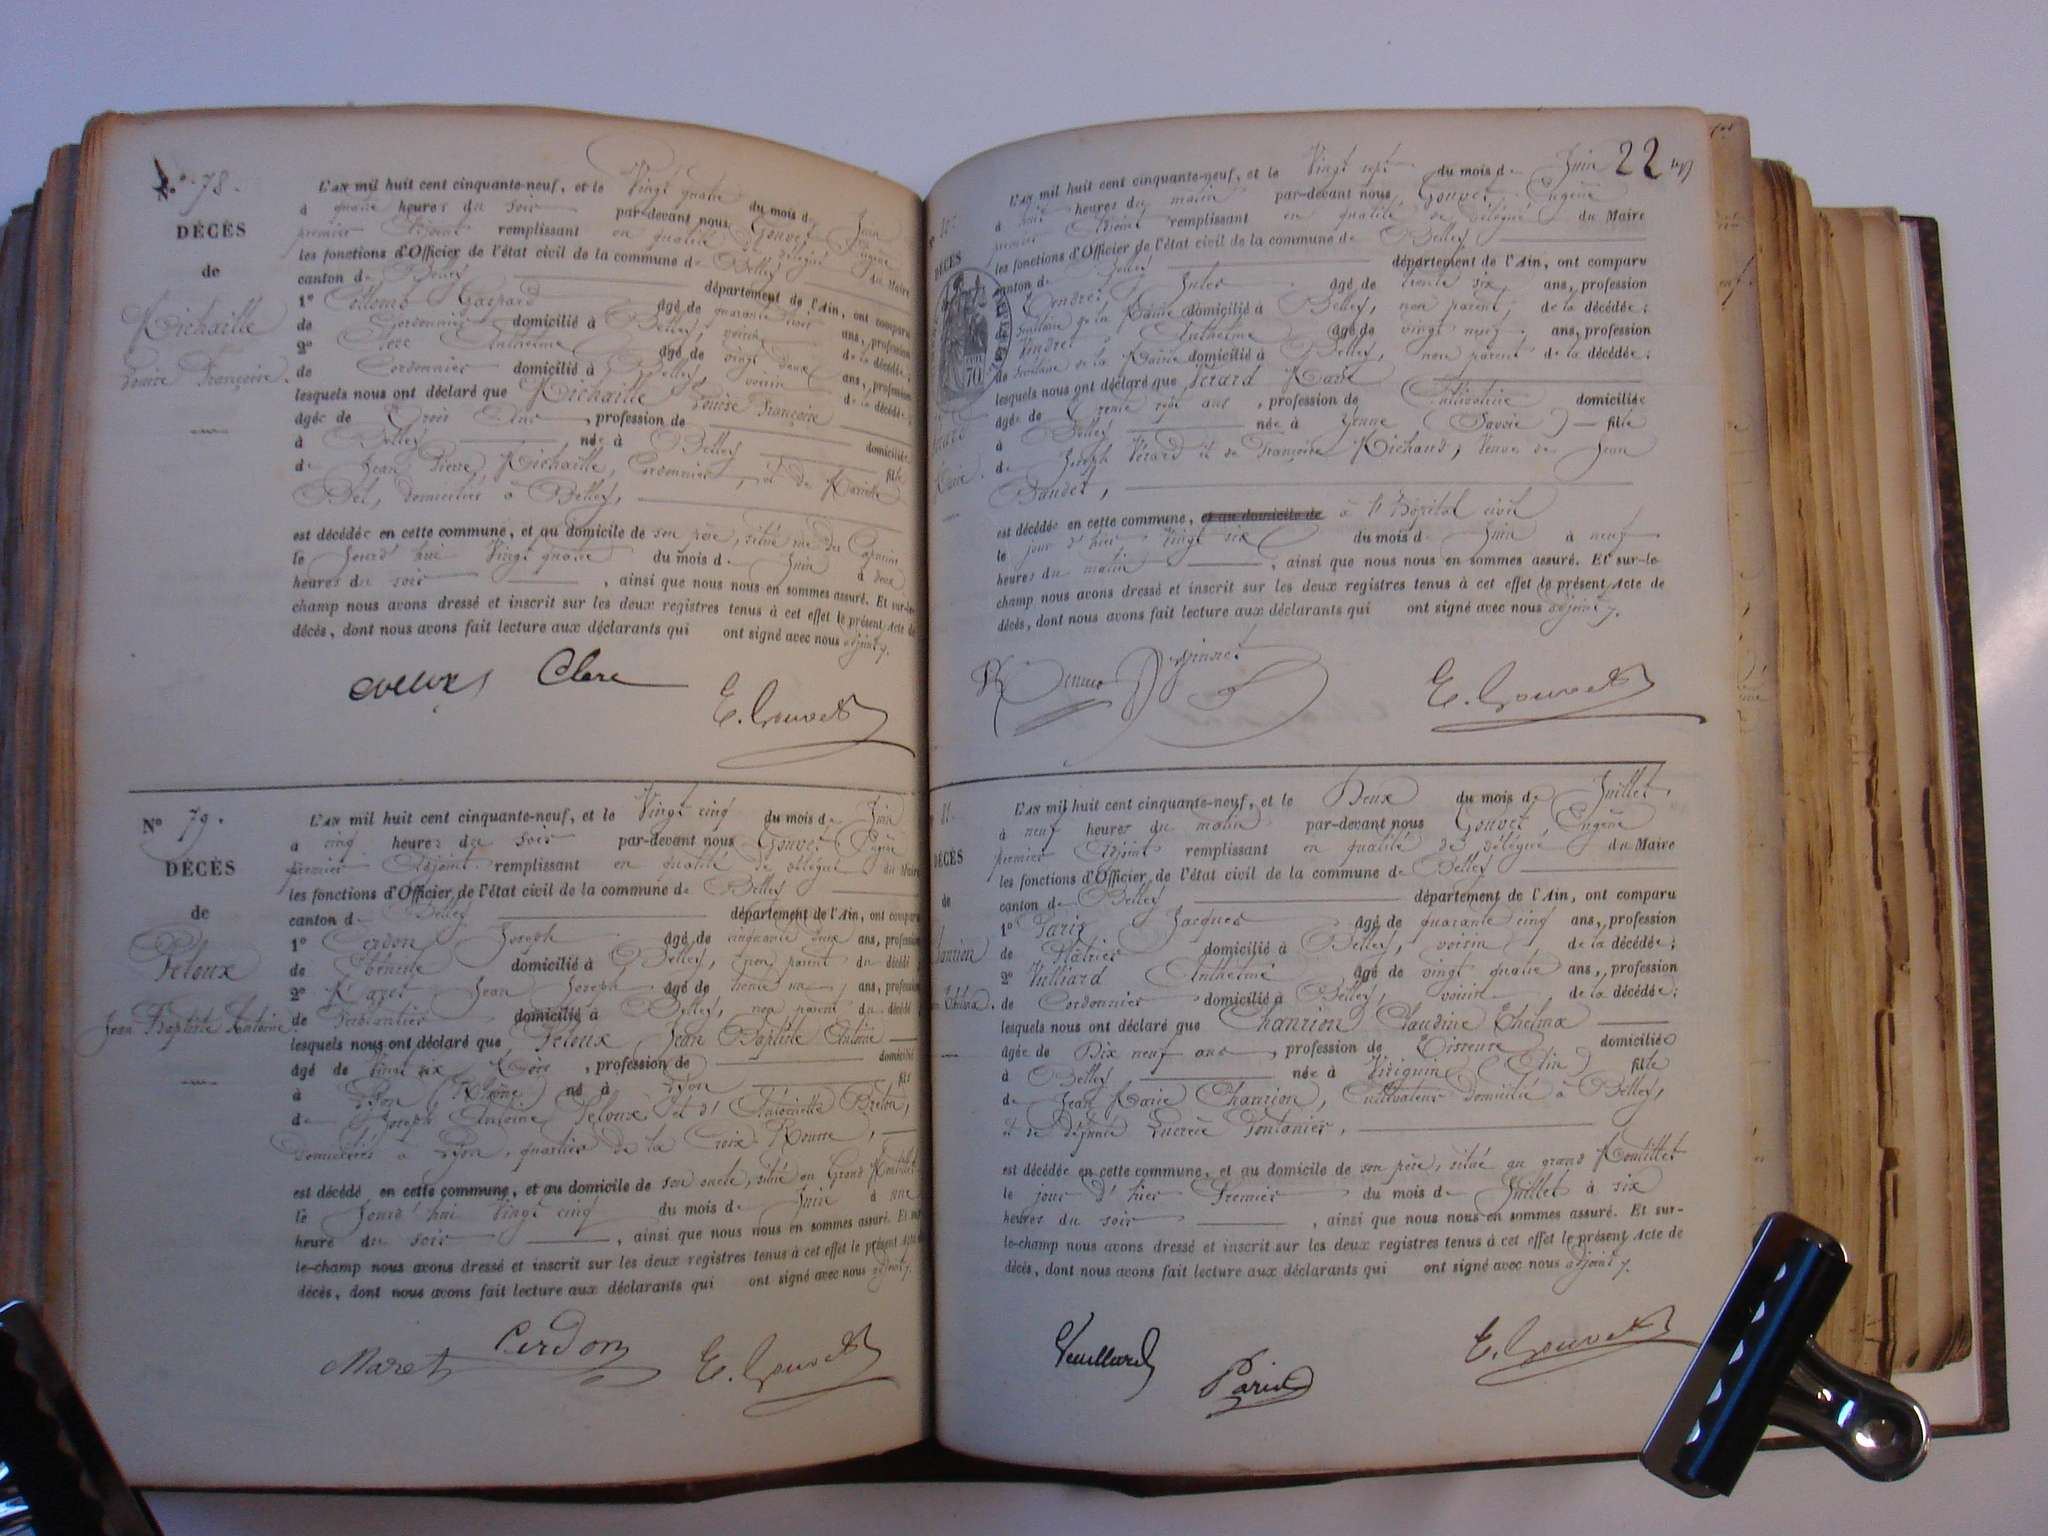 N° 78.
DÉCÈS
de
Michaille
Louise Françoise.
L'AN mil huit cent cinquante-neuf, et le Vingt quatre du mois de Juin
à quatre heures du soir par-devant nous Gouvet Eugène
premier Adjoint remplissant en qualité de délégué du Maire
les fonctions d'Officier de l'état civil de la commune de Belley
canton de Belley département de l'Ain, ont comparu
1° Gaspard âgé de quarante trois ans, profession
de Cordonnier domicilié à Belley, voisin de la décédée;
2° Clerc Anthelme âgé de vingt deux ans, profession
de Cordonnier domicilié à Belley, voisin de la décédée;
lesquels nous ont déclaré que Michaille Louise Françoise
âgée de Trois Ans, profession de domiciliée
à Belley, née à Belley fille
de Jean Pierre Michaille, Cordonnier, et de Mariette
Bel, domiciliés à Belley,
est décédée en cette commune, et au domicile de son père, situé rue des Capucins
le Jourd'hui Vingt quatre du mois de Juin à deux
heures du soir, ainsi que nous nous en sommes assuré. Et sur-le-
champ nous avons dressé et inscrit sur les deux registres tenus à cet effet le présent Acte de
décès, dont nous avons fait lecture aux déclarants qui ont signé avec nous adjoint.
Clerc
E. Gouvet
N° 79.
DÉCÈS
de
Peloux
Jean Baptiste Antoine.
L'AN mil huit cent cinquante-neuf, et le Vingt cinq du mois de Juin
à cinq heures du soir par-devant nous Gouvet Eugène
premier Adjoint remplissant en qualité de délégué du Maire
les fonctions d'Officier de l'état civil de la commune de Belley
canton de Belley département de l'Ain, ont comparu
1° Cerdon Joseph âgé de cinquante deux ans, profession
de Ebéniste domicilié à Belley, non parent du décédé
2° Maret Jean Joseph âgé de trente un, ans, profession
de Ferblantier domicilié à Belley, non parent du décédé
lesquels nous ont déclaré que Peloux Jean Baptiste Antoine
âgé de Vingt six Mois, profession de domicilié
à Lyon (Rhône) né à Lyon fils
de Joseph Antoine Peloux et d'Antoinette Breton,
domiciliés à Lyon, quartier de la Croix Rousse,
est décédé en cette commune, et au domicile de son oncle, situé en Grand Moulillet
le Jourd'hui Vingt cinq du mois de Juin à une
heure du soir, ainsi que nous nous en sommes assuré. Et sur-
le-champ nous avons dressé et inscrit sur les deux registres tenus à cet effet le présent Acte de
décès, dont nous avons fait lecture aux déclarants qui ont signé avec nous adjoint.
Maret
Cerdon
E. Gouvet
22
DÉCÈS
70
Marie.
L'AN mil huit cent cinquante-neuf, et le Vingt sept du mois de Juin
à heures du matin par-devant nous Gouvet Eugène
premier Adjoint remplissant en qualité de délégué du Maire
les fonctions d'Officier de l'état civil de la commune de Belley
canton de Belley département de l'Ain, ont comparu
Jules âgé de trente six ans, profession
de Secrétaire de la Mairie domicilié à Belley, non parent, de la décédée;
Anthelme âgé de vingt neuf ans, profession
de Secrétaire de la Mairie domicilié à Belley, non parent de la décédée;
lesquels nous ont déclaré que Vérard Marie
âgée de Trente sept ans, profession de Cultivatrice domiciliée
à Belley née à Yenne (Savoie) fille
de Joseph Vérard et de Françoise Michaud, Veuve de Jean
Baudet,
est décédée en cette commune, et au domicile de à l'Hôpital civil
le jour d'hier Vingt six du mois de Juin à neuf
heures du matin, ainsi que nous nous en sommes assuré. Et sur-le-
champ nous avons dressé et inscrit sur les deux registres tenus à cet effet le présent Acte de
décès, dont nous avons fait lecture aux déclarants qui ont signé avec nous adjoint.
E. Gouvet
81.
DÉCÈS
de
L'AN mil huit cent cinquante-neuf, et le Deux du mois de Juillet,
à neuf heures du matin par-devant nous Gouvet Eugène
premier Adjoint remplissant en qualité de délégué du Maire
les fonctions d'Officier de l'état civil de la commune de Belley
canton de Belley département de l'Ain, ont comparu
1° Paris Jacques âgé de quarante cinq ans, profession
de Plâtrier domicilié à Belley, voisin, de la décédée;
2° Vulliard Anthelme âgé de vingt quatre ans, profession
de Cordonnier domicilié à Belley, voisin de la décédée;
lesquels nous ont déclaré que Chanrion Claudine Thelma
âgée de Dix neuf ans, profession de Tisseuse domiciliée
à Belley née à Virignin (Ain) fille
de Jean Marie Chanrion, Cultivateur domicilié à Belley,
et de défunte Lucrèce Fontanier,
est décédée en cette commune, et au domicile de son père, situé au grand Moulillet
le jour d'hier Premier du mois de Juillet à six
heures du soir, ainsi que nous nous en sommes assuré. Et sur-
le-champ nous avons dressé et inscrit sur les deux registres tenus à cet effet le présent Acte de
décès, dont nous avons fait lecture aux déclarants qui ont signé avec nous adjoint.
Vuillard
Paris
E. Gouvet